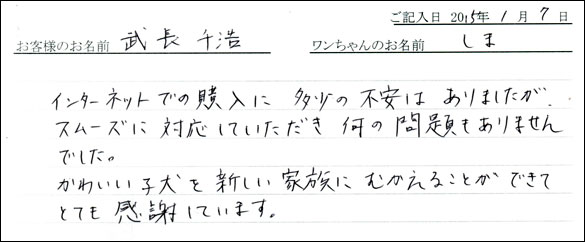 ご記入日 2015年 1月 7日
お客様のお名前 武長 千浩 ワンちゃんのお名前 しま
インターネットでの購入に 多少の不安は ありましたが、
スムーズに 対応していただき 何の問題もありません
でした。
かわいい子犬を 新しい家族に むかえることができて
とても 感謝しています。